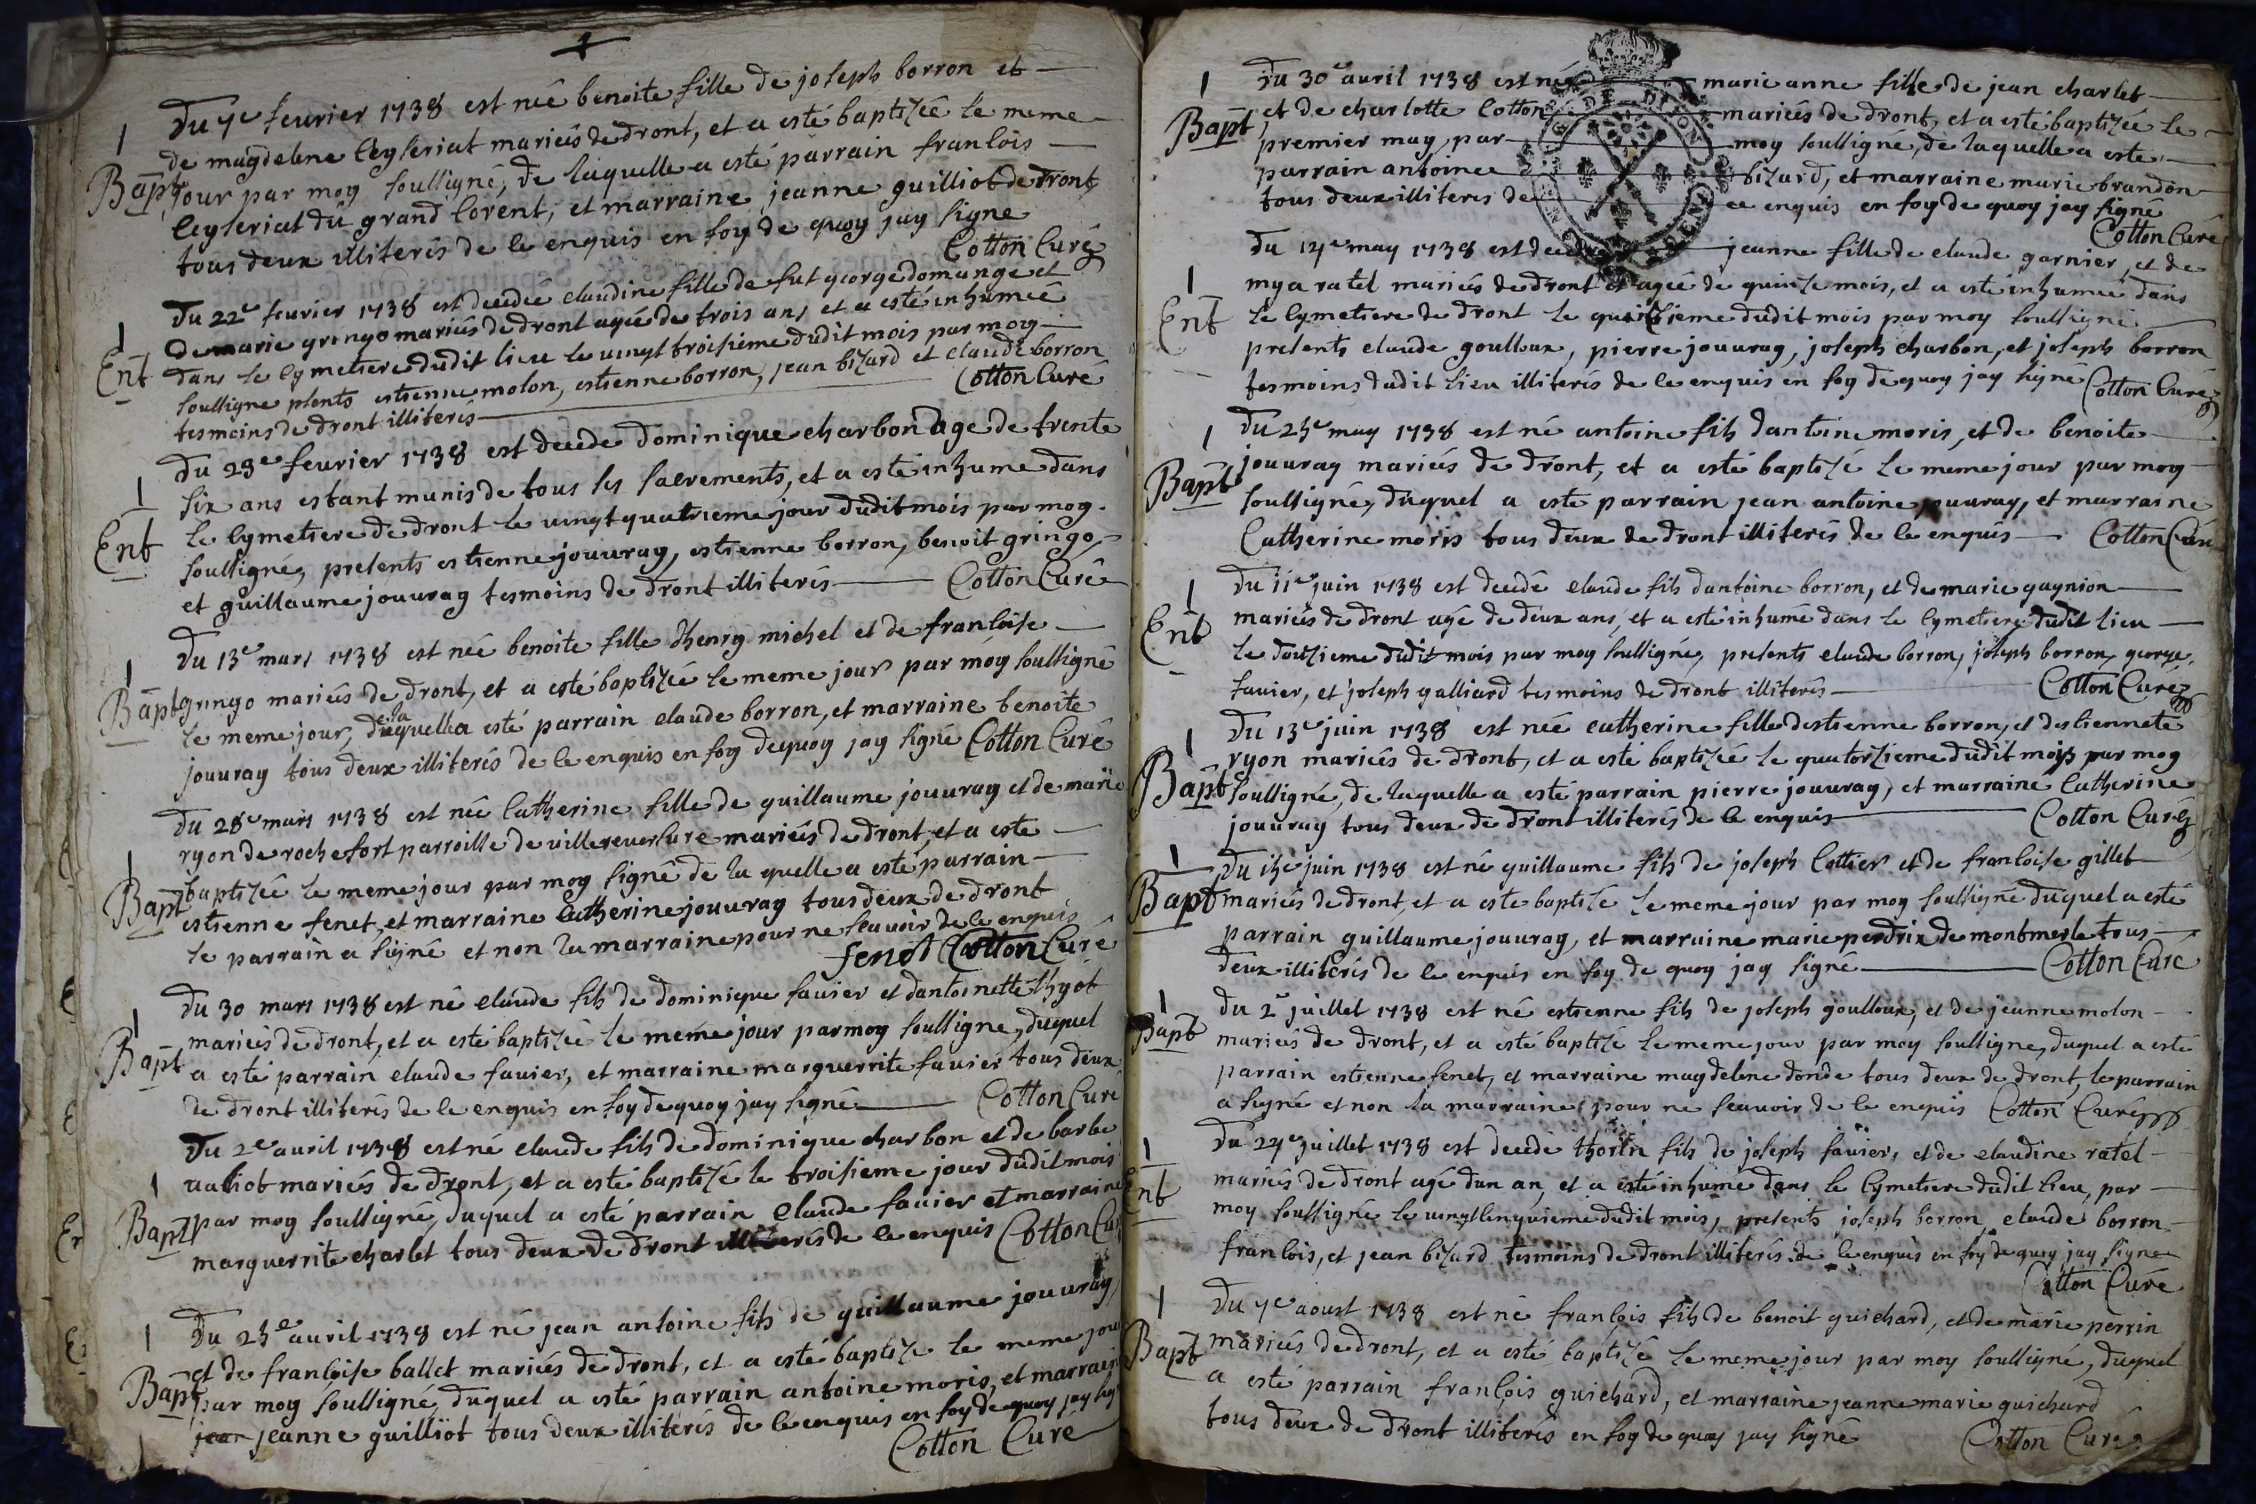 Du 7e feurier 1738 est neé benoite fille de joseph borron et
de magdelene ceyseriat mariés de dront, et a esté baptizée le meme
Bapt jour par moy soussigné, de laquelle a esté parrain francois
ceyseriat du grand corent, et marraine jeanne guilliot de dront
tous deux illiterés de ce enquis en foy de quoy jay signe
Cotton Curé
Du 22e feurier 1738 est decedeé claudine fille de fut george domange et
de marie gringo mariés de dront ageé de trois ans et a esté inhumeé
Ent dans le cymetiere dudit lieu le uingt troisieme dudit mois par moy
soussigne pnts estienne molon, estienne borron, jean bizard et claude borron
tesmoins de dront illiterés Cotton Curé
Du 23e feurier 1738 est decede dominique charbon age de trente
six ans estant munis de tous les sacrements, et a esté inhume dans
Ent le cymetiere de dront le uingt quatrieme jour dudit mois par moy
soussigné, presents estienne jouuray, estienne borron, benoit gringo,
et guillaume jouuray tesmoins de dront illiterés Cotton Curé
Du 13e mars 1738 est neé benoite fille dhenry michel et de francoise
Bapt gringo mariés de dront, et a esté baptizeé le meme jour par moy soussigné
le meme jour, de laquelle a esté parrain claude borron, et marraine benoite
jouuray tous deux illiterés de ce enquis en foy de quoy jay signé Cotton Curé
Du 28e mars 1738 est neé Catherine fille de guillaume jouuray et de marie
ryon de rochefort parroisse de uillereuersure mariés de dront, et a este
Bapt baptizeé le meme jour par moy signé de la quelle a esté parrain
estienne fenet, et marraine catherine jouuray tous deux de dront
le parrain a signé et non la marraine pour ne scauoir de ce enquis
fenet Cotton Curé
Du 30 mars 1738 est né claude fils de dominique fauier et dantoinette thyot
mariés de dront, et a esté baptizé le meme jour par moy soussigne, duquel
Bapt a esté parrain claude fauier, et marraine marguerrite fauier tous deux
de dront illiterés de ce enquis en foy de quoy jay signé Cotton Curé
Du 2e auril 1738 est né claude fils de dominique charbon et de barbe
mariés de dront, et a esté baptizé le troisieme jour dudit mois
Bapt par moy soussigné, duquel a esté parrain claude fauier et marraine
marguerrite charlet tous deux de dront illiterés de ce enquis Cotton Curé
Du 25e auril 1738 est né jean antoine fils de guillaume jouuray,
et de francoise ballet mariés de dront, et a esté baptize le meme jour
Bapt par moy soussigné, duquel a esté parrain antoine moris, et marraine
jeanne guilliot tous deux illiterés de ce enquis en foy de quoy jay
Cotton Curé
Du 30e auril 1738 est née marie anne fille de jean charlet
Bapt et de charlotte Cotton mariés de dront, et a esté baptizée le
premier may, par moy soussigné, de laquelle a este
parrain antoine bizard, et marraine marie brandon
tous deux illiteres de ce enquis en foy de quoy jay signé
Cotton Curé
Du 14e may 1738 est decedeé jeanne fille de claude garnier, et de
mya ratel mariés de dront ageé de quinze mois, et a esté inhumeé dans
Ent le cymetiere de dront le quinzieme dudit mois par moy soussigné
presents claude goulloux, pierre jouuray, joseph charbon, et joseph borron
tesmoins dudit lieu illiterés de ce enquis en foy de quoy jay signé Cotton Curé
Du 25e may 1738 est né antoine fils dantoine moris, et de benoite
jouuray mariés de dront, et a esté baptizé le meme jour par moy
Bapt soussigné, duquel a este parrain jean antoine jouuray, et marraine
Catherine moris tous deux de dront illiterés de ce enquis Cotton Curé
Du 11e juin 1738 est decedé claude fils dantoine borron, et de marie gagnion
mariés de dront agé de deux ans, et a esté inhumé dans le cymetiere dudit lieu
Ent le douzieme dudit mois par moy soussigné, presents claude borron, joseph borron, george
fauier, et joseph galliard tesmoins de dront illiterés Cotton Curé
Du 13e juin 1738 est neé catherine fille destienne borron, et destiennete
ryon mariés de dront, et a esté baptizeé le quatorzieme dudit mois par moy
Bapt soussigné, de laquelle a esté parrain pierre jouuray, et marraine Catherine
jouuray tous deux de dront illiterés de ce enquis Cotton Curé
Du 15e juin 1738 est né guillaume fils de joseph Cottier et de francoise gillet
Bapt mariés de dront, et a este baptizé le meme jour par moy soussigné duquel a esté
parrain guillaume jouuray, et marraine marie perdrix de montmerle tous
deux illiterés de ce enquis en foy de quoy jay signé Cotton Curé
Du 2e juillet 1738 est né estienne fils de joseph goulloux, et de jeanne molon
Bapt mariés de dront, et a esté baptizé le meme jour par moy soussigne, duquel a esté
parrain estienne fenet, et marraine magdelene donde tous deux de dront, le parrain
a signé et non la marraine pour ne scauoir de ce enquis Cotton Curé
Du 24e juillet 1738 est decedé thorin fils de joseph fauier, et de claudine ratel
Ent mariés de dront agé dun an, et a esté inhume dans le cymetiere dudit lieu, par
moy soussigné le uingt cinquieme dudit mois, presents joseph borron, claude borron
francois, et jean bizard tesmoins de dront illiterés de ce enquis en foy de quoy jay signe
Cotton Curé
Du 7e aoust 1738 est né françois fils de benoit guichard, et de marie perrin
Bapt mariés de dront, et a esté baptizé le meme jour par moy soussigné, duquel
a esté parrain françois guichard, et marraine jeanne marie guichard
tous deux de dront illiterés en foy de quoy jay signé Cotton Curé